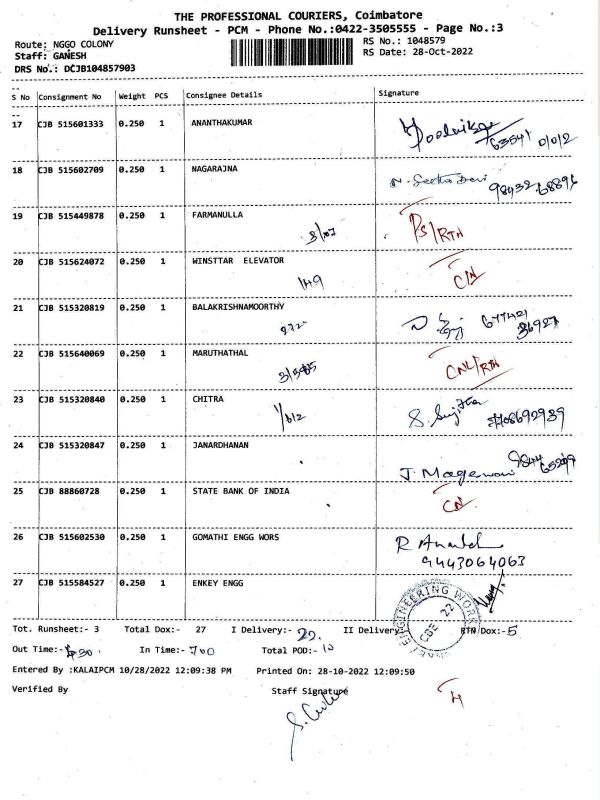 THE PROFESSIONAL COURIERS, Coimbatore
Delivery Runsheet - PCM - Phone No.:0422-3505555 - Page No.:3
Route: NGGO COLONY RS No.: 1048579
Staff: GANESH RS Date: 28-Oct-2022
DRS No.: DCJB104857903
S No Consignment No Weight PCS Consignee Details Signature
17 CJB 515601333 0.250 1 ANANTHAKUMAR
18 CJB 515602709 0.250 1 NAGARAJNA
19 CJB 515449878 0.250 1 FARMANULLA
3/07 Ps/RTN
20 CJB 515624072 0.250 1 WINSTTAR ELEVATOR
149 CN
21 CJB 515320819 0.250 1 BALAKRISHNAMOORTHY
22 CJB 515640069 0.250 1 MARUTHATHAL
CNL/RTN
23 CJB 515320840 0.250 1 CHITRA
1/612 S. Sujitha
24 CJB 515320847 0.250 1 JANARDHANAN
25 CJB 88860728 0.250 1 STATE BANK OF INDIA
CN
26 CJB 515602530 0.250 1 GOMATHI ENGG WORS
9443064063
27 CJB 515584527 0.250 1 ENKEY ENGG
ENGINEERING WORK
CBE 22
Tot. Runsheet:- 3 Total Dox:- 27 I Delivery:- 22. II Delivery RTN Dox:-5
Out Time:- In Time:- 700 Total POD:- 10
Entered By :KALAIPCM 10/28/2022 12:09:38 PM Printed On: 28-10-2022 12:09:50
Verified By Staff Signature